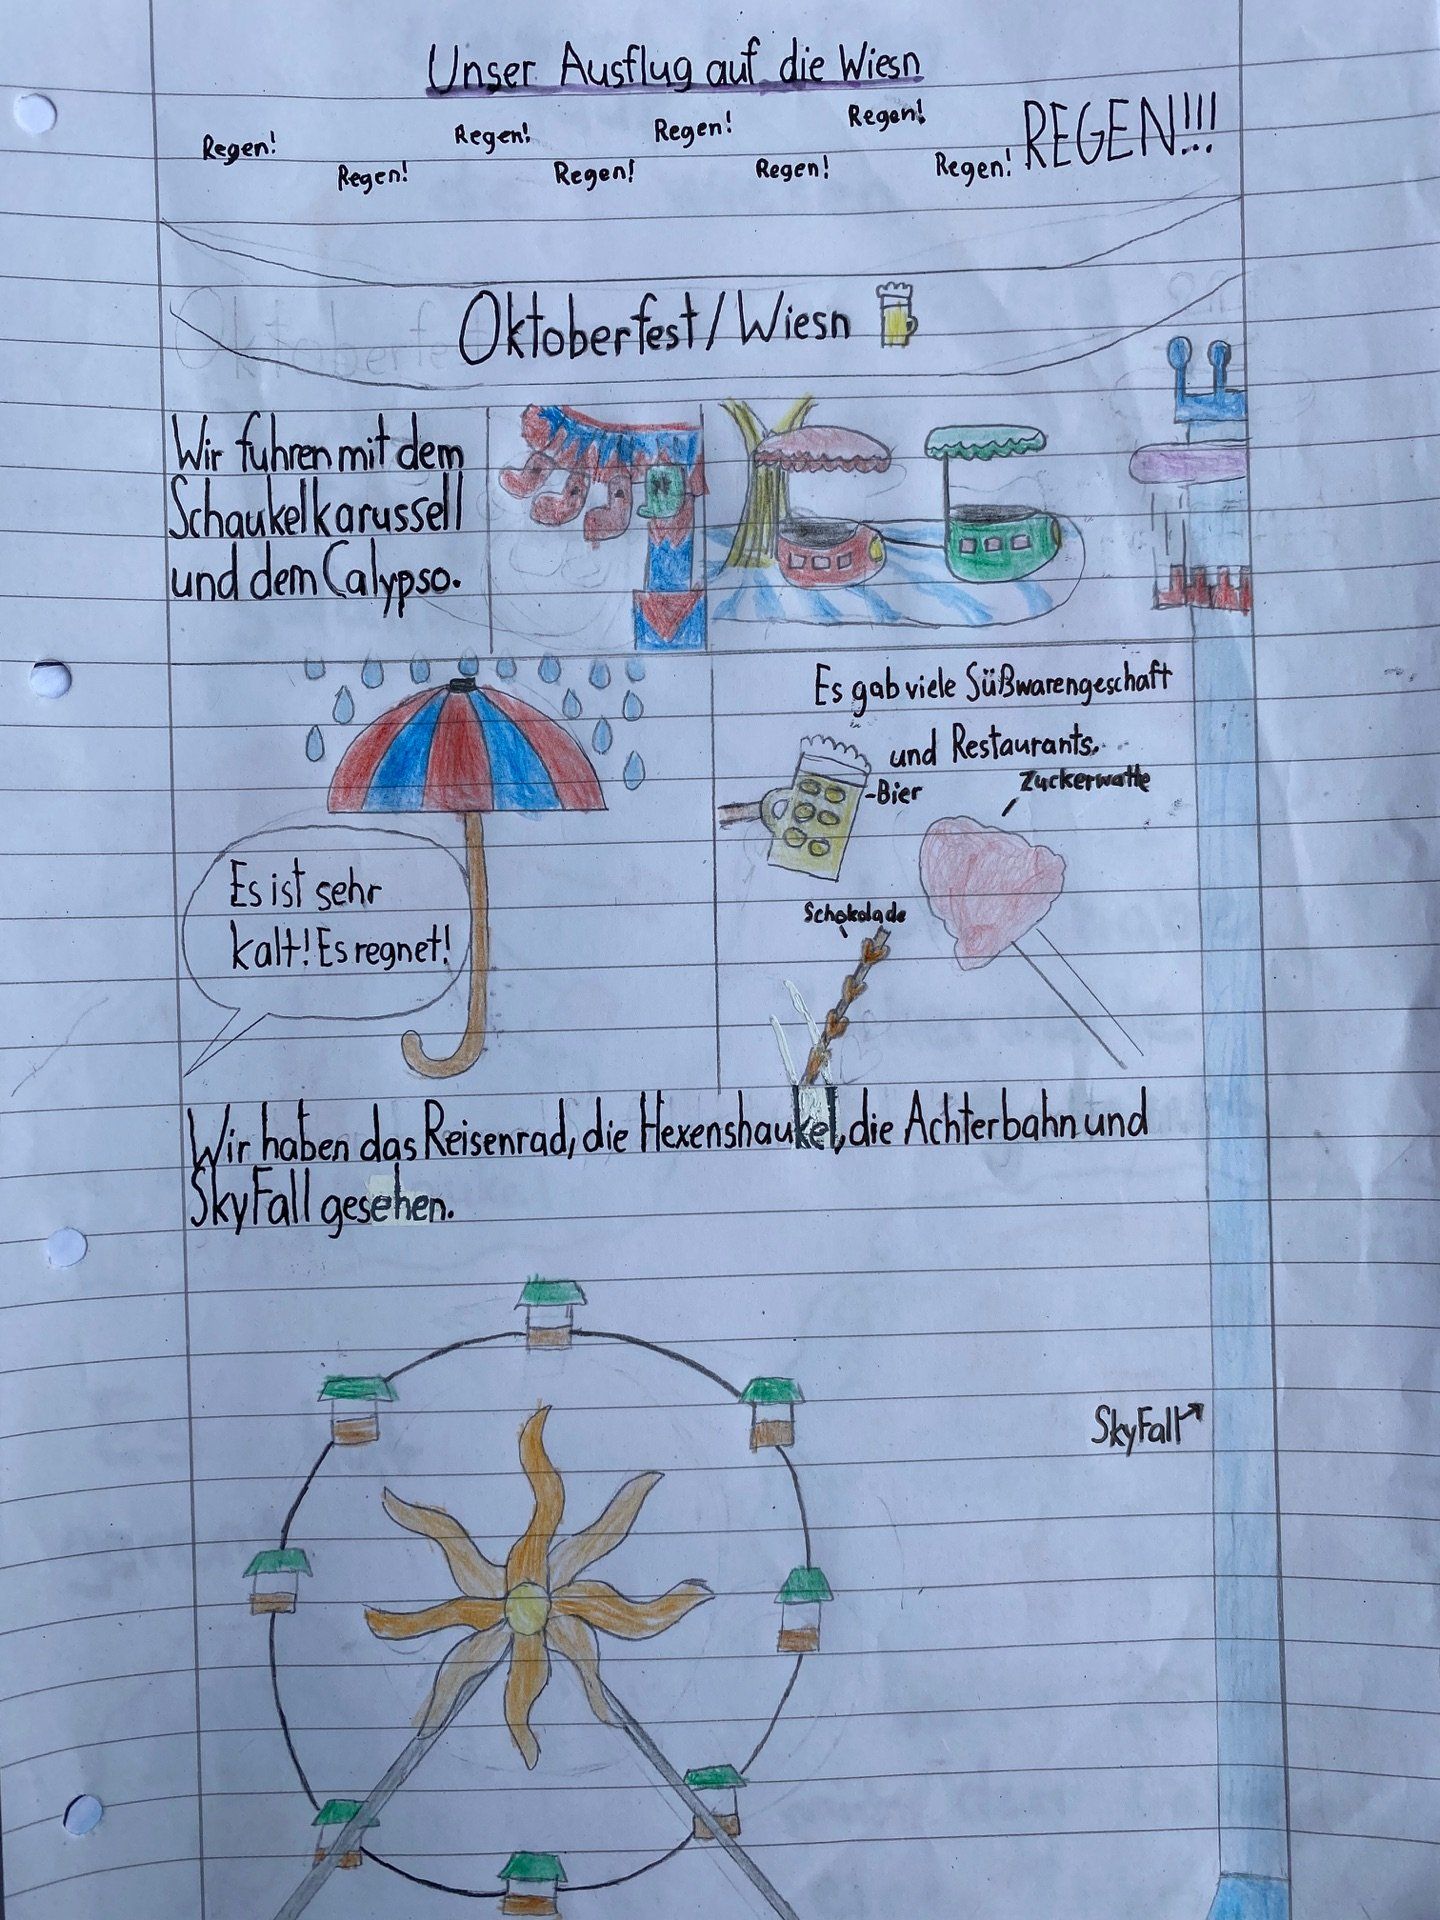 Unser Ausflug auf die Wiesn
Regen! Regen! Regen! Regen! Regen! Regen! Regen! Regen! REGEN!!!
Oktoberfest/Wiesn
Wir fuhren mit dem
Schaukelkarussell
und dem Calypso.
Es ist sehr
kalt! Es regnet!
Es gab viele Süßwarengeschaft
und Restaurants.
-Bier
Zuckerwatte
Schokolade
Wir haben das Reisenrad, die Hexenshaukel, die Achterbahn und
SkyFall gesehen.
SkyFall